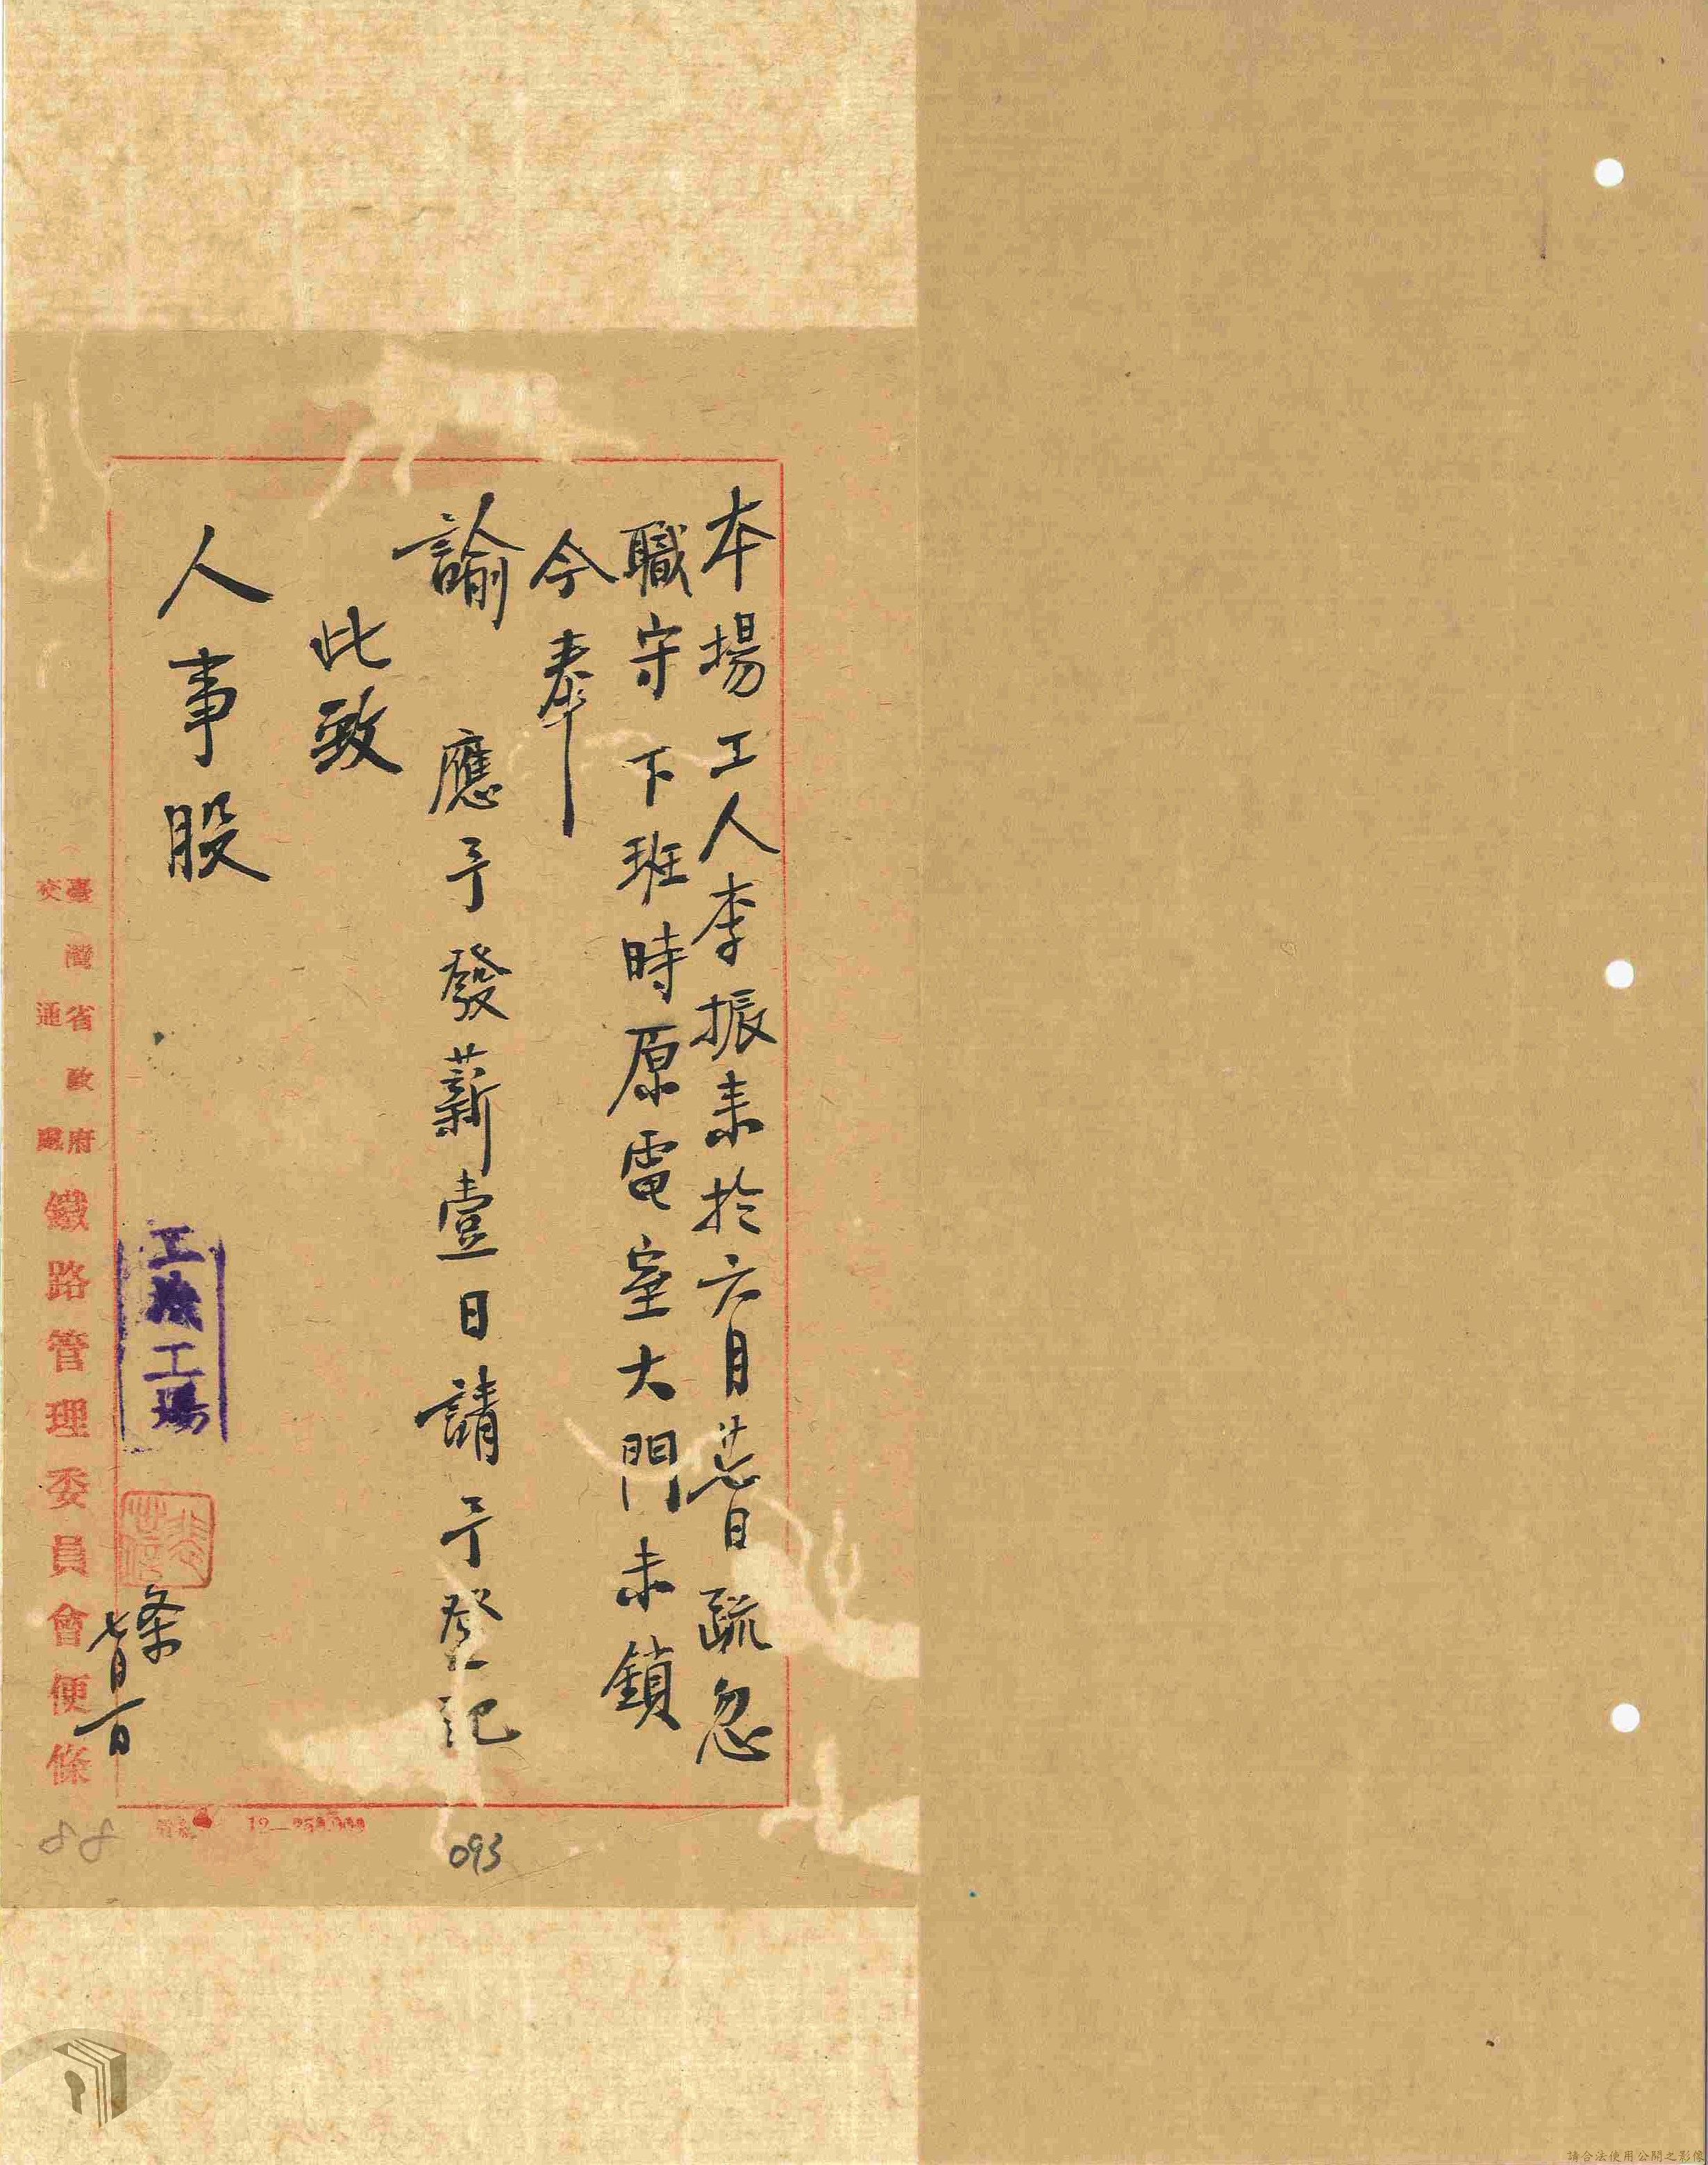 本場工人李振来於六月廿日疏忽
職守下班時原電室大門未鎖
今奉
諭 應予發薪壹日請予登記
此致
人事股
工務工場
条 七月一日
臺灣省政府
交通處
鐵路管理委員會便條
093
88
請合法使用公開之影像